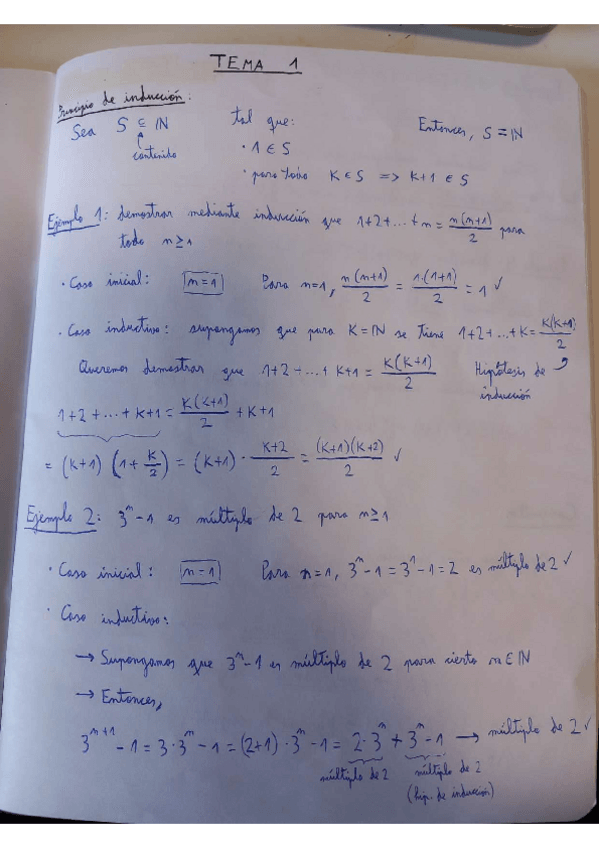 TEMA 1
Principio de inducción:
Sea S ⊆ IN tal que: Entonces, S = IN
contenido
· 1 ∈ S
· para todo K ∈ S => K+1 ∈ S
Ejemplo 1: demostrar mediante inducción que 1+2+...+n = n(n+1)/2 para
todo n≥1
· Caso inicial: n=1 Para n=1, n(n+1)/2 = 1·(1+1)/2 = 1 ✓
· Caso inductivo: supongamos que para K=IN se tiene 1+2+...+K = K(K+1)/2
Queremos demostrar que 1+2+...+K+1 = K(K+1)/2 Hipótesis de
inducción
1+2+...+K+1 = K(K+1)/2 + K+1
= (K+1) (1+K/2) = (K+1) · K+2/2 = (K+1)(K+2)/2 ✓
Ejemplo 2: 3^n-1 es múltiplo de 2 para n≥1
· Caso inicial: n=1 Para n=1, 3^n-1 = 3^1-1 = 2 es múltiplo de 2 ✓
· Caso inductivo:
→ Supongamos que 3^n-1 es múltiplo de 2 para cierto n∈IN
→ Entonces,
3^n+1 - 1 = 3·3^n - 1 = (2+1)·3^n - 1 = 2·3^n + 3^n-1 → múltiplo de 2 ✓
múltiplo de 2 múltiplo de 2
(hip. de inducción)